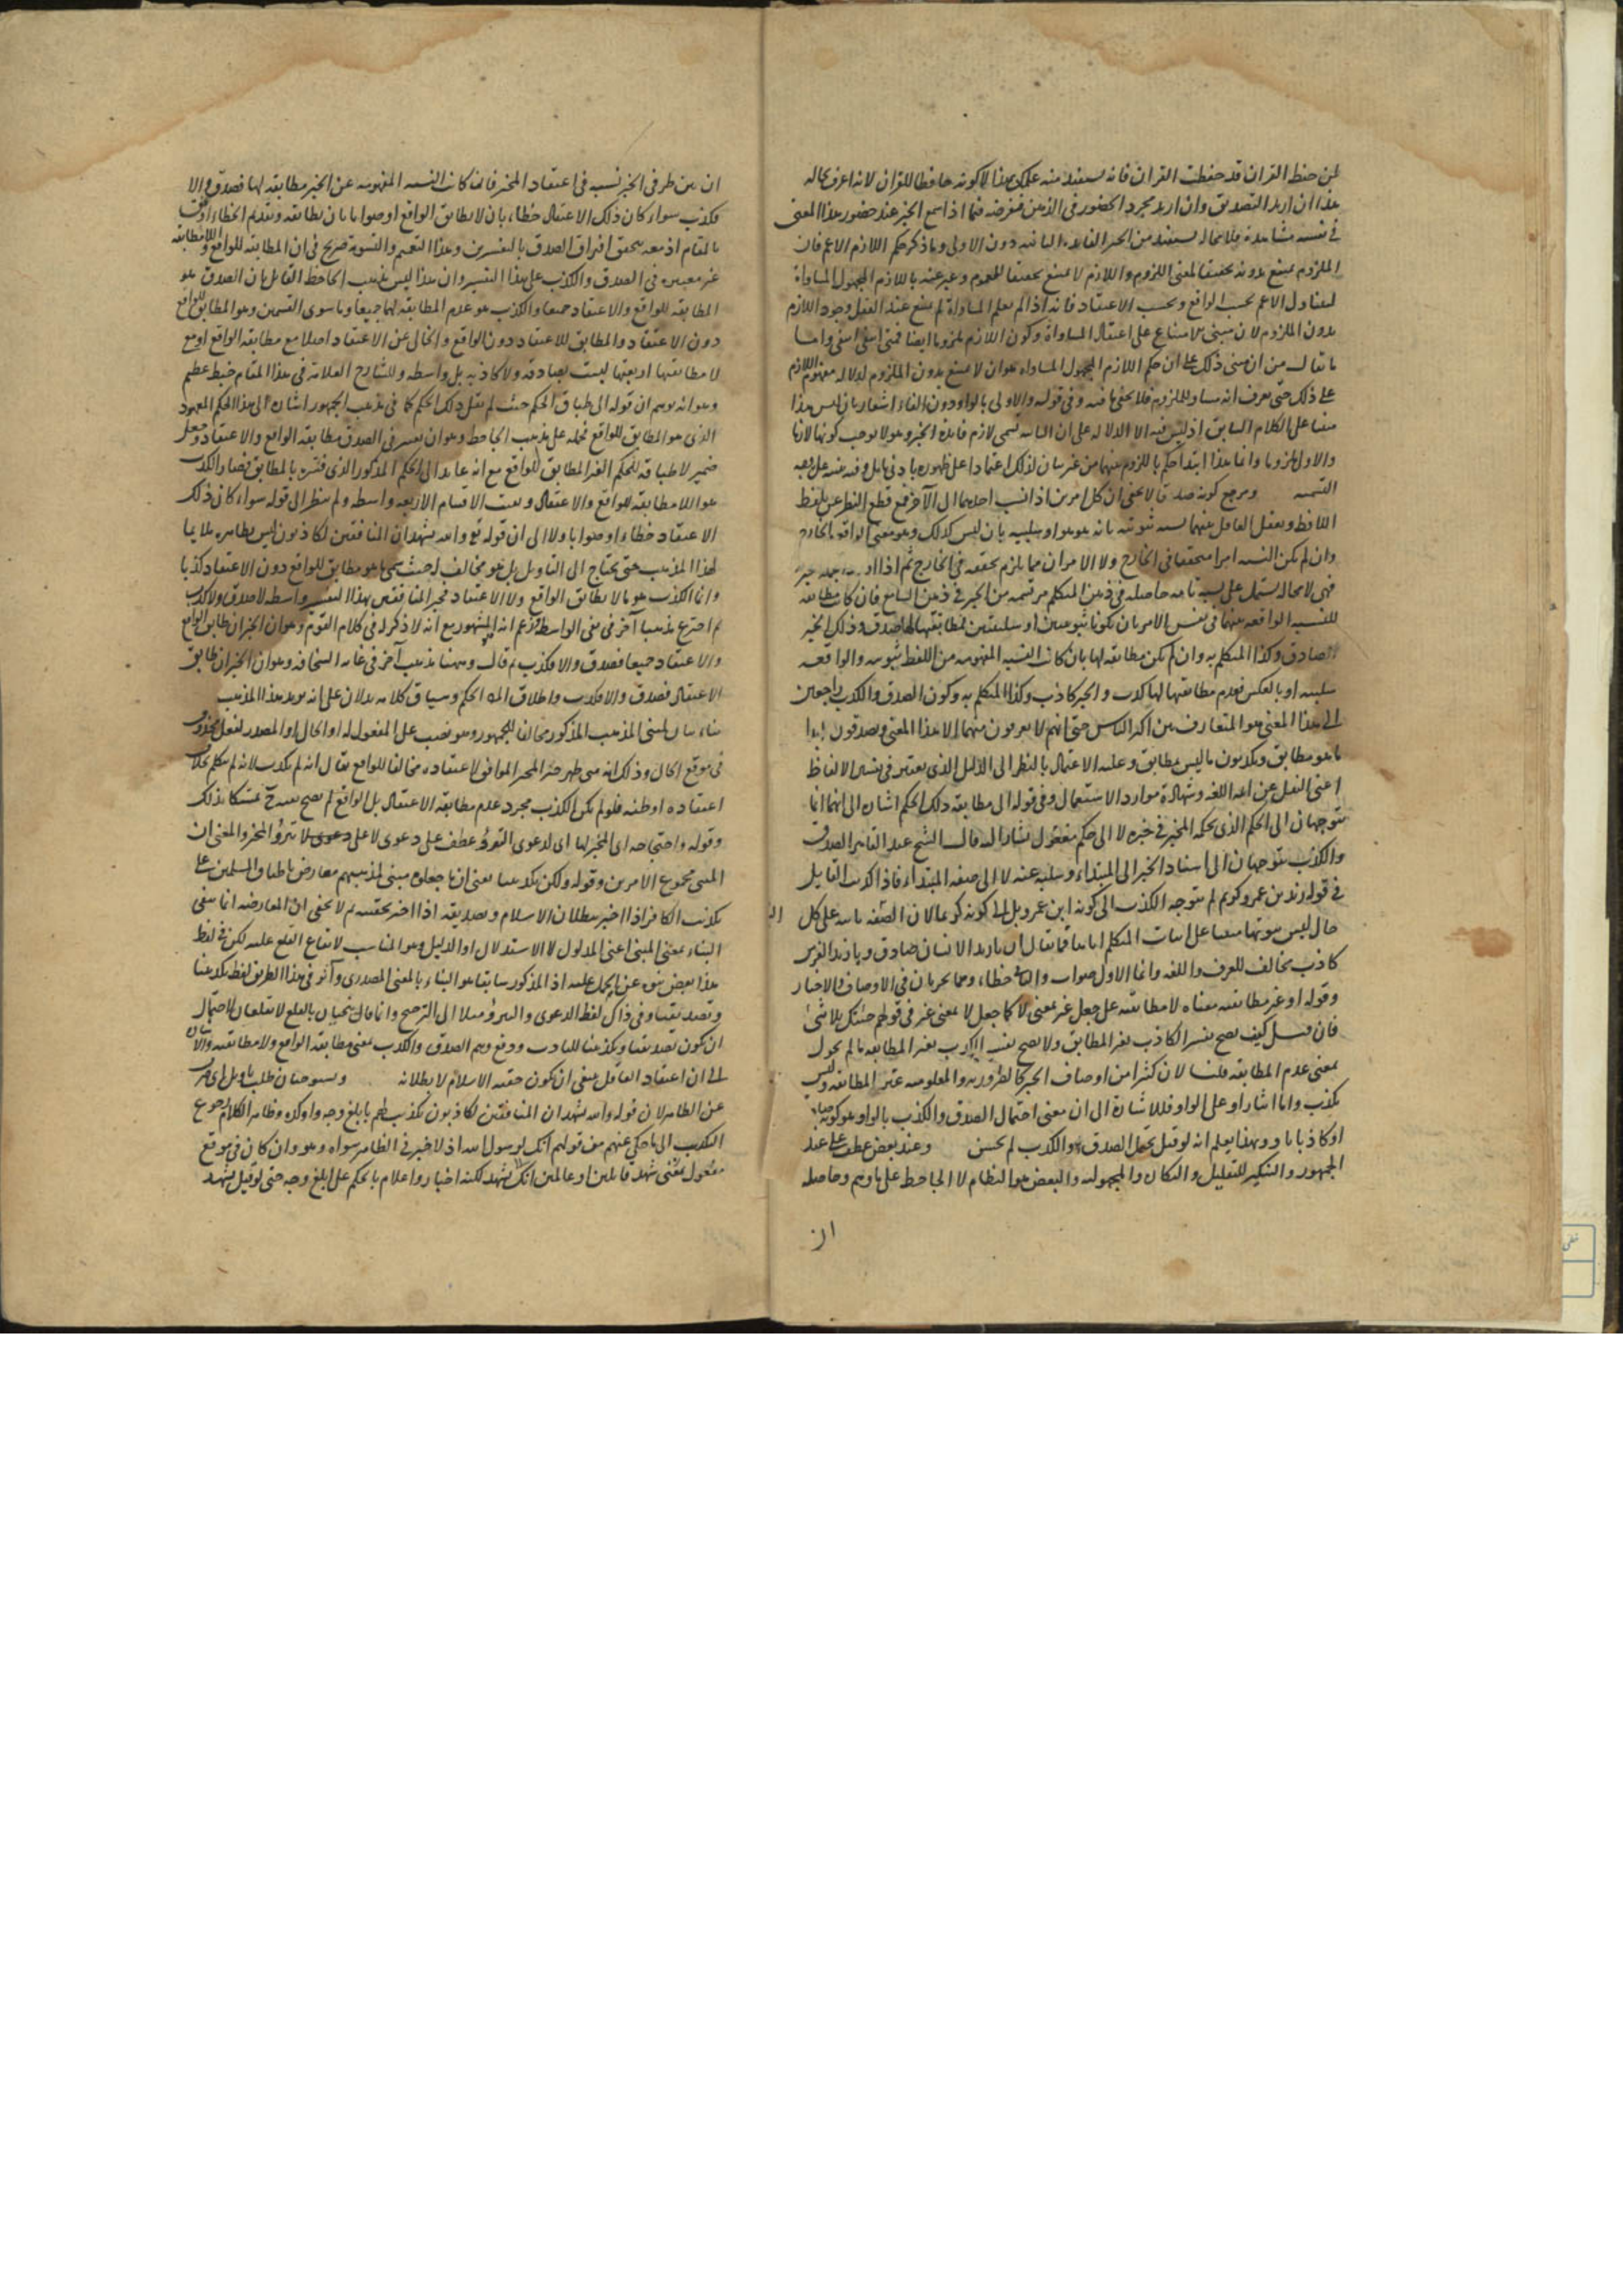 لمن حفظ القران قد حفظت القران فانه يستفيد منه علمك بهذا لا كونه حافظا للقران لانه اعرف بحاله
هذا ان اريد التصديق وان اريد مجرد الحضور في الذهن فنفرضه فيما اذا سمع الخبر عند حضور هذا المعنى
في نفسه مشاهدة فلا محالة يستفيد من الخبر الفايدة الثانيه دون الاولى وما ذكر حكم اللازم الاعم فان
الملزوم يمتنع بدونه تحقيقا لمعنى اللزوم واللازم لا يمتنع تحقيقا للعموم وعبر عنه باللازم المجهول المساواة
ليتناول الاعم بحسب الواقع وبحسب الاعتقاد فانه اذا لم يعلم المساواة لم يمتنع عند العقل وجود اللازم
بدون الملزوم لان مبنى الامتناع على اعتقاد المساواة وكون اللازم ملزوما ايضا فمتى انتفى انتفى واما
ما يقال من ان مبنى ذلك على ان حكم اللازم المجهول المساواة هو ان لا يمتنع بدون الملزوم لدلالة مفهوم اللازم
على ذلك حتى يعرف انه مساو للملزوم فلا يخفى ما فيه وفي قوله والاولى بالواو دون الفاء اشعار بان ليس هذا
مبنيا على الكلام السابق اذ ليس فيه الا الدلاله على ان الثانيه تسمى لازم فايدة الخبر وهو لا يوجب كونها لازما
والاولى ملزوما وانما هذا ابتداء حكم باللزوم بينهما من غير بيان لذلك اعتمادا على ظهوره بادنى تامل وفيه تنبيه على وجه
التسميه ومرجع كونه صدقا لا يخفى ان كل امرين اذا نسب احدهما الى الآخر فمع قطع النظر عن تلفظ
اللافظ وتعقل العاقل بينهما نسبه ثبوتيه بانه هو هو او سلبيه بان ليس كذلك وهو معنى الواقع والخارج
وان لم يكن النسبه امرا متحققا في الخارج ولا الامران مما يلزم تحققه في الخارج ثم اذا جمله خبر
فهي لا محالة يشتمل على نسبة تامه حاصله في ذهن المتكلم مرتسمه من الخبر في ذهن السامع فان كانت مطابقه
للنسبه الواقعه بينهما في نفس الامر بان تكونا ثبوتيتين او سلبيتين فمطابقتها لها صدق وذلك الخبر
صادق وكذا المتكلم به وان لم يكن مطابقه لها بان كانت النسبه المفهومه من اللفظ ثبوتيه والواقعه
سلبيه او بالعكس فعدم مطابقتها لها كذب والخبر كاذب وكذا المتكلم به وكون الصدق والكذب راجعين
الى هذا المعنى هو المتعارف بين اكثر الناس حتى انهم لا يعرفون منهما الا هذا المعنى ويصدقون ابدا
ما هو مطابق ويكذبون ما ليس مطابق وعليه الاعتماد بالنظر الى الدليل الذي يعتبر في تفسير الالفاظ
اعنى النقل عن ائمه اللغه وشهادة موارد الاستعمال وفي قوله الى مطابقه ذلك الحكم اشاره الى انهما انما
يتوجهان الى الحكم الذي يحكمه المخبر في خبره لا الى حكم مفعول يشار اليه قال الشيخ عبد القاهر الصدق
والكذب يتوجهان الى اسناد الخبر الى المبتداء وسلبه عنه لا الى صفه المبتداء فاذا كذبت القايل
في قوله زيد بن عمرو كريم لم يتوجه الكذب الى كونه ابن عمرو بل الى كونه كريما لان الصفه ثابته على كل
حال ليس ثبوتها مبنيا على اثبات المتكلم اياها فما يقال ان يا زيد الانسان صادق ويا زيد الفرس
كاذب مخالف للعرف واللغه وانما الاول صواب والثاني خطاء، وهما يجريان في الاوصاف والاخبار
وقوله او غير مطابقته معناه لا مطابقته على جعل غير بمعنى لا كما جعل لا بمعنى غير في قولهم جئتك بلا شئ
فان قيل كيف يصح تفسير الكاذب بغير المطابق ولا يصح تفسير الكذب بغير المطابقه ما لم يحول
بمعنى عدم المطابقه قلنا لان كثيرا من اوصاف الخبر كالضروريه والمعلوميه غير المطابقه وليس
بكذب وانما اشار او على الواو فللاشارة الى ان معنى احتمال الصدق والكذب بالواو هو كونه صادقا
او كاذبا باو وبهذا يعلم انه لو قيل يحتمل الصدق او الكذب لم يحسن وعند بعض عطف على عند
الجمهور والتنكير للتقليل والتكارة والمجهوليه والبعض هو النظام لا الجاحظ على ما توهم وحاصله
ان
ان بين طرفي الخبر نسبه في اعتقاد المخبر فان كانت النسبه المفهومه عن الخبر مطابقه لها فصدق والا
فكذب سواء كان ذلك الاعتقاد خطاء، بان لا يطابق الواقع او صوابا بان يطابقه وتقديم الخطاء اوفق
بالمقام اذ معه يتحقق افتراق الصدق بالتفسيرين وهذا التعميم والتسوية صريح في ان المطابقه للواقع واللامطابقه
غير معتبره في الصدق والكذب على هذا التفسير وان هذا ليس مذهب الجاحظ القايل بان الصدق هو
المطابقه للواقع والاعتقاد جميعا والكذب هو عدم المطابقه لهما جميعا وما سوى القسمين وهو المطابق للواقع
دون الاعتقاد والمطابق للاعتقاد دون الواقع والخالي عن الاعتقاد اصلا مع مطابقه الواقع او مع
لا مطابقتها اربعتها ليست بصادقه ولا كاذبه بل واسطه وللشارح العلامة في هذا المقام خبط عظيم
وهو انه توهم ان قوله الى طباق الحكم حيث لم يقل ذلك الحكم كما في مذهب الجمهور اشاره الى هذا الحكم المعهود
الذي هو المطابق للواقع فحمله على مذهب الجاحظ وهو ان يعتبر في الصدق مطابقه الواقع والاعتقاد وجعل
ضمير لا طباقه للحكم الغير المطابق للواقع مع انه عايد الى الحكم المذكور الذي فسره بالمطابق فصار الكذب
هو اللا مطابقه للواقع والاعتقاد وبقيت الاقسام الاربعه واسطه ولم ينظر الى قوله سواء كان ذلك
الاعتقاد خطاء او صوابا ولا الى ان قوله تع والله يشهد ان المنافقين لكاذبون ليس بظاهره ملايما
لهذا المذهب حتى يحتاج الى التاويل بل هو مخالف له حيث سمى ما هو مطابق للواقع دون الاعتقاد كذبا
وانما الكذب هو ما لا يطابق الواقع ولا الاعتقاد فخبر المنافقين بهذا التفسير واسطه لا صدق ولا كذب
ثم اخترع مذهبا آخر في نفى الواسطة وزعم انه المشهور مع انه لا ذكر له في كلام القوم وهو ان الخبر ان طابق الواقع
والاعتقاد جميعا فصدق والا فكذب ثم قال وههنا مذهب آخر في غاية السخافه وهو ان الخبر ان طابق
الاعتقاد فصدق والا فكذب واطلاق الحكم وسياق كلامه يدلان على انه يريد هذا المذهب
بناء، بيان لمبنى المذهب المذكور مخالفا للجمهور وهو نصب على المفعول له او الحال او المصدر لفعل محذوف
في موقع الحال وذلك انه متى ظهر خبر المخبر الموافق لاعتقاده مخالفا للواقع يقال انه لم يكذب لانه لم يتكلم بخلاف
اعتقاده او ظنه فلو لم يكن الكذب مجرد عدم مطابقه الاعتقاد بل الواقع لم يصح تمسكا بذلك
وقوله واحتجاجه اى المخبر لها اى لدعوى التبرؤ عطف على دعوى لا على دعوى بلا تبرؤ المخبر والمعنى ان
المبنى مجموع الامرين وقوله ولكن تكذيبنا يعنى ان ما جعلوه مبنى لمذهبهم معارض باطباق المسلمين على
تكذيب الكافر اذا اخبر ببطلان الاسلام وتصديقه اذا اخبر بحقيته ثم لا يخفى ان المعارضه انما تنفى
البناء بمعنى المبنى اعنى المدلول لا الاستدلال او الدليل وهو المناسب لايقاع القلع عليه لكن في لفظ
هذا بعض نبوه عن الحمل عليه اذ المذكور سابقا هو البناء بالمعنى المصدرى وآثر في هذا الطريق لفظ تكذيبنا
وتصديقنا وفي ذاك لفظ الدعوى والتبرؤ ميلا الى الترجيح وانما قال ينحيان بالقلع لا يقلعان لاحتمال
ان يكون تصديقنا وتكذيبنا للتادب ودفع وهم الصدق والكذب بمعنى مطابقه الواقع ولا مطابقته
الى ان اعتقاد العاقل ينفى ان يكون حقيه الاسلام لا بطلانه ويستوجبان طلب تاويل لما صرف
عن الظاهر لان قوله والله يشهد ان المنافقين لكاذبون تكذيب لهم بابلغ وجه واوكده وظاهر الكلام رجوع
التكذيب الى ما حكى عنهم من قولهم انك لرسول الله اذ لا خبر في الظاهر سواه وهو وان كان في موقع
مفعول بمعنى نشهد قايلين او عالمين انك نشهد لكنه اخبار واعلام بالحكم على ابلغ وجه حتى لو قيل نشهد